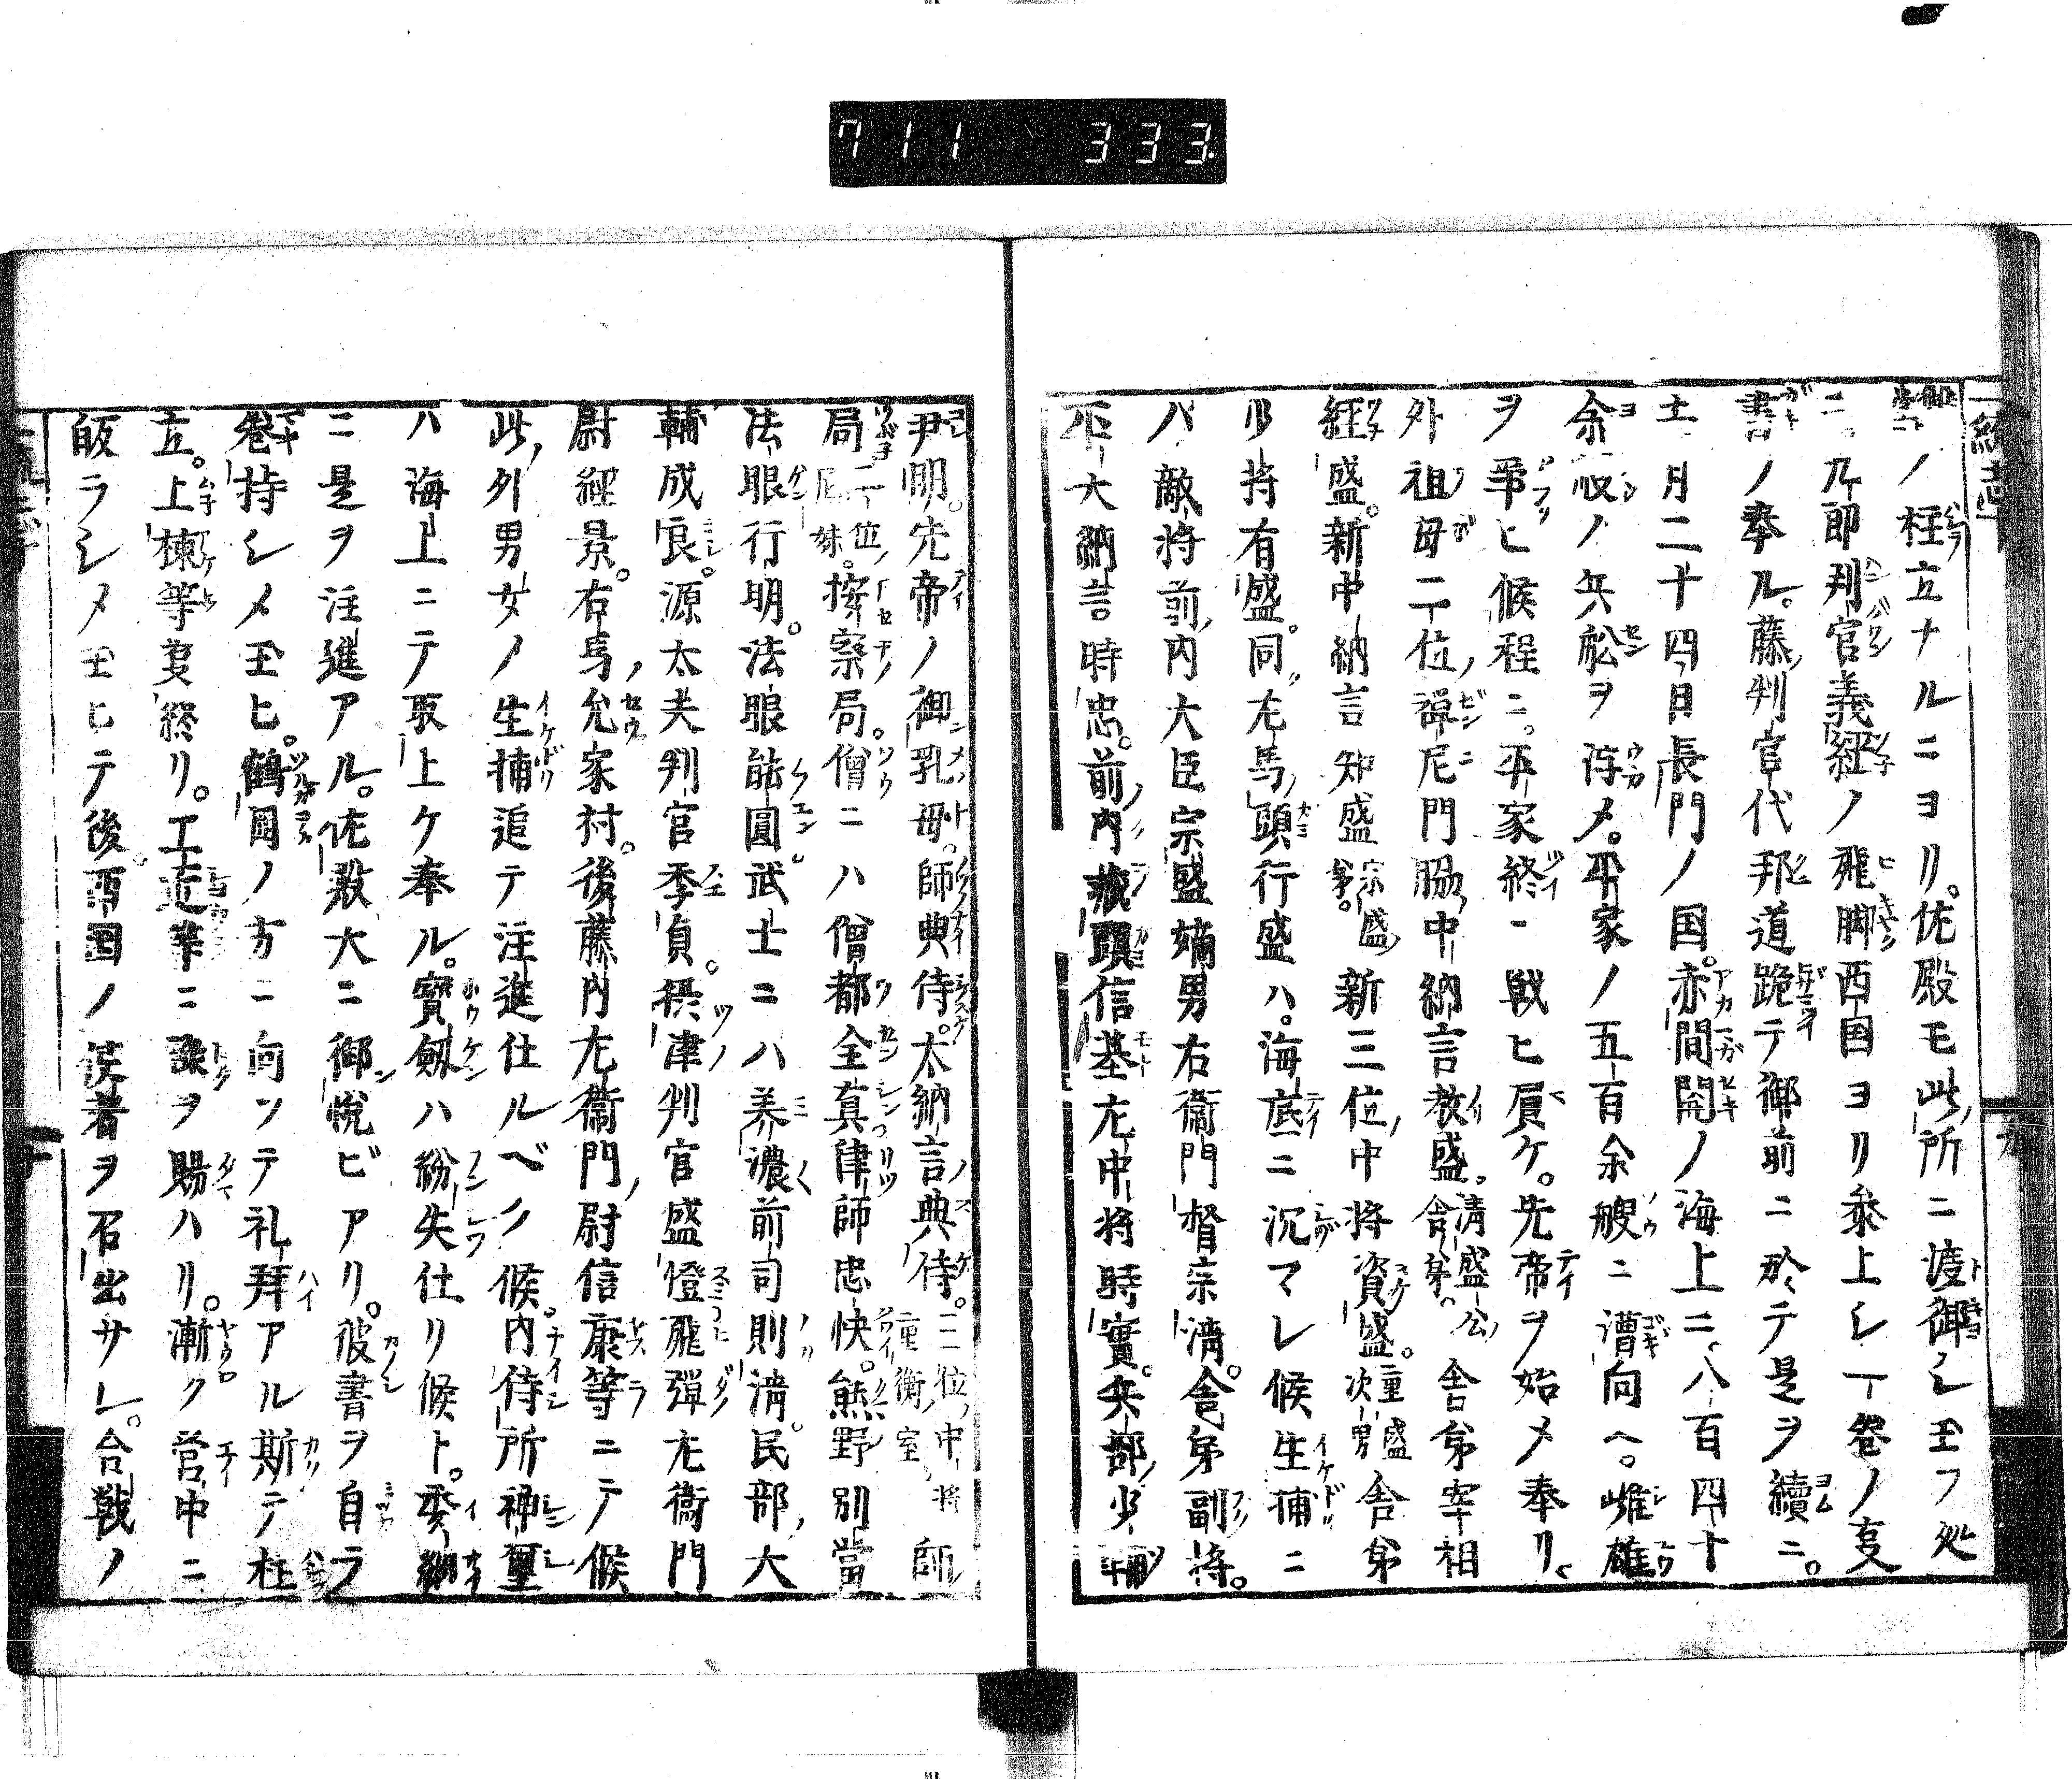 711 333
ノ柱立ナルニヨリ。佐殿モ此所ニ渡御シ玉フ処
ニ。乃即判官義経ノ飛脚西国ヨリ参上シ一巻ノ事
書ノ奉ル。藤判官代邦道跪テ御前ニ於テ是ヲ續ニ。
十一月二十四日長門ノ国。赤間関ノ海上ニ。八百四十
余艘ノ兵舩ヲ浮メ。平家ノ五百余艘ニ漕向ヘ。雌雄
ヲ争ヒ候程ニ。平家終一戦ヒ負ケ。先帝ヲ始メ奉リ。
外祖母二位禅尼門脇中納言教盛。清盛公ノ舎弟。舎弟宰相
経盛。新中納言知盛宗盛ノ弟。新三位中将資盛。重盛次男舎弟
少将有盛。同左馬頭行盛ハ。海底ニ沉マレ候生捕ニ
ハ敵将前内大臣宗盛嫡男右衛門督宗清。舎弟副将。
平大納言時忠。前内蔵頭信基左中将時實。兵部少輔
尹明。先帝ノ御乳母。師典侍。大納言典侍。三位中将重衡ノ室師
局二位ノ尼妹。按察局。僧ニハ僧都全真律師忠快。熊野別當
法眼行明。法眼能圓。武士ニハ美濃前司則清。民部大
輔成良。源太夫判官季負。摂津判官盛澄飛弾左衛門
尉經景。右馬允家村。後藤内左衛門尉信康等ニテ候
此外男女ノ生捕追テ注進仕ルベク候。内侍所神璽
ハ海上ニテ取上ケ奉ル。寳劔ハ紛失仕リ候ト。委細
ニ是ヲ注進アル。佐殿大ニ御悦ビアリ。彼書ヲ自ラ
巻持シメ玉ヒ。鶴岡ノ方ニ向ンテ礼拜アル斯テ柱
立。上棟等事終リ。工匠等ニ禄ヲ賜ハリ。漸ク営中ニ
皈ラシメ玉ヒテ後西国ノ使者ヲ召出サレ。合戦ノ